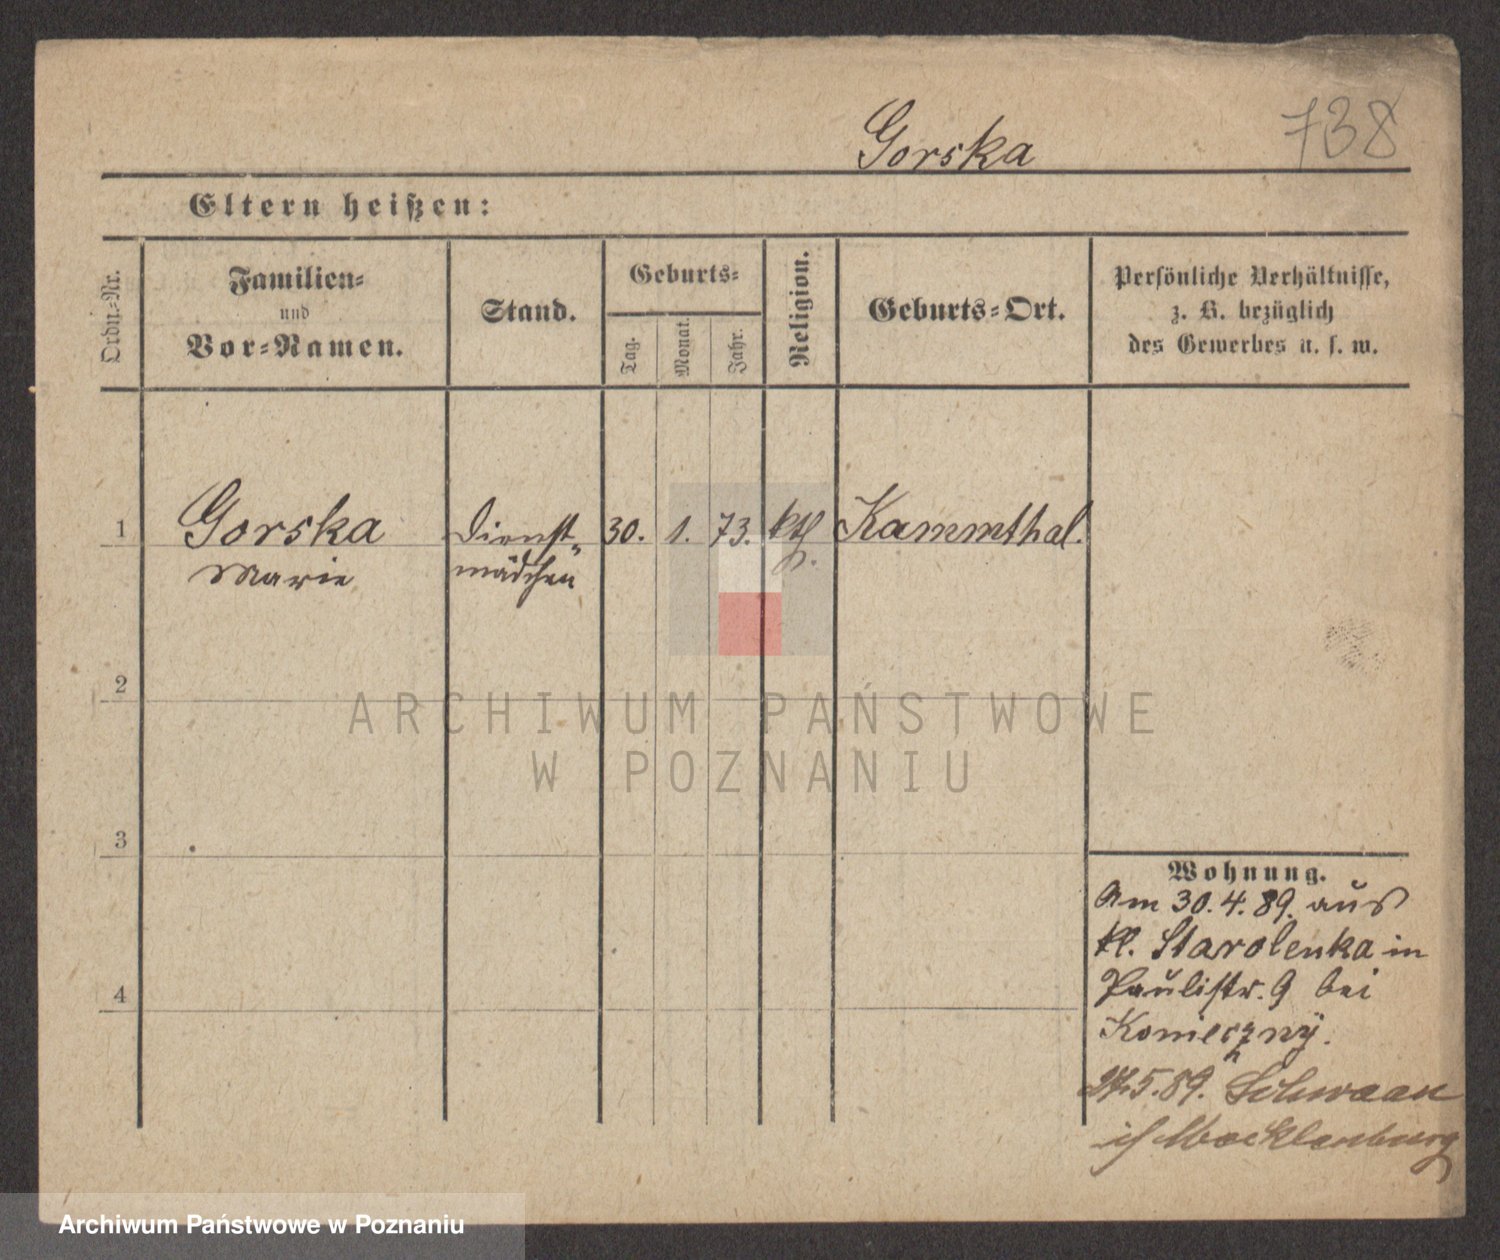 Gorska
738
Eltern heißen:
Ordn.-Nr.
Familien-
und
Vor-Namen.
Stand.
Geburts-
Tag.
Monat.
Jahr.
Religion.
Geburts-Ort.
Persönliche Verhältnisse,
z. B. bezüglich
des Gewerbes u. s. w.
1
Gorska
Marie
Dienst-
mädchen
30. 1. 73. kth. Kammthal.
2
3
4
Wohnung.
Am 30.4.89. aus
kl. Starolenka in
Paulistr. 9 bei
Konieczny.
27.5.89. Schwaan
i/ Mecklenburg
ARCHIWUM PAŃSTWOWE
W POZNANIU
Archiwum Państwowe w Poznaniu